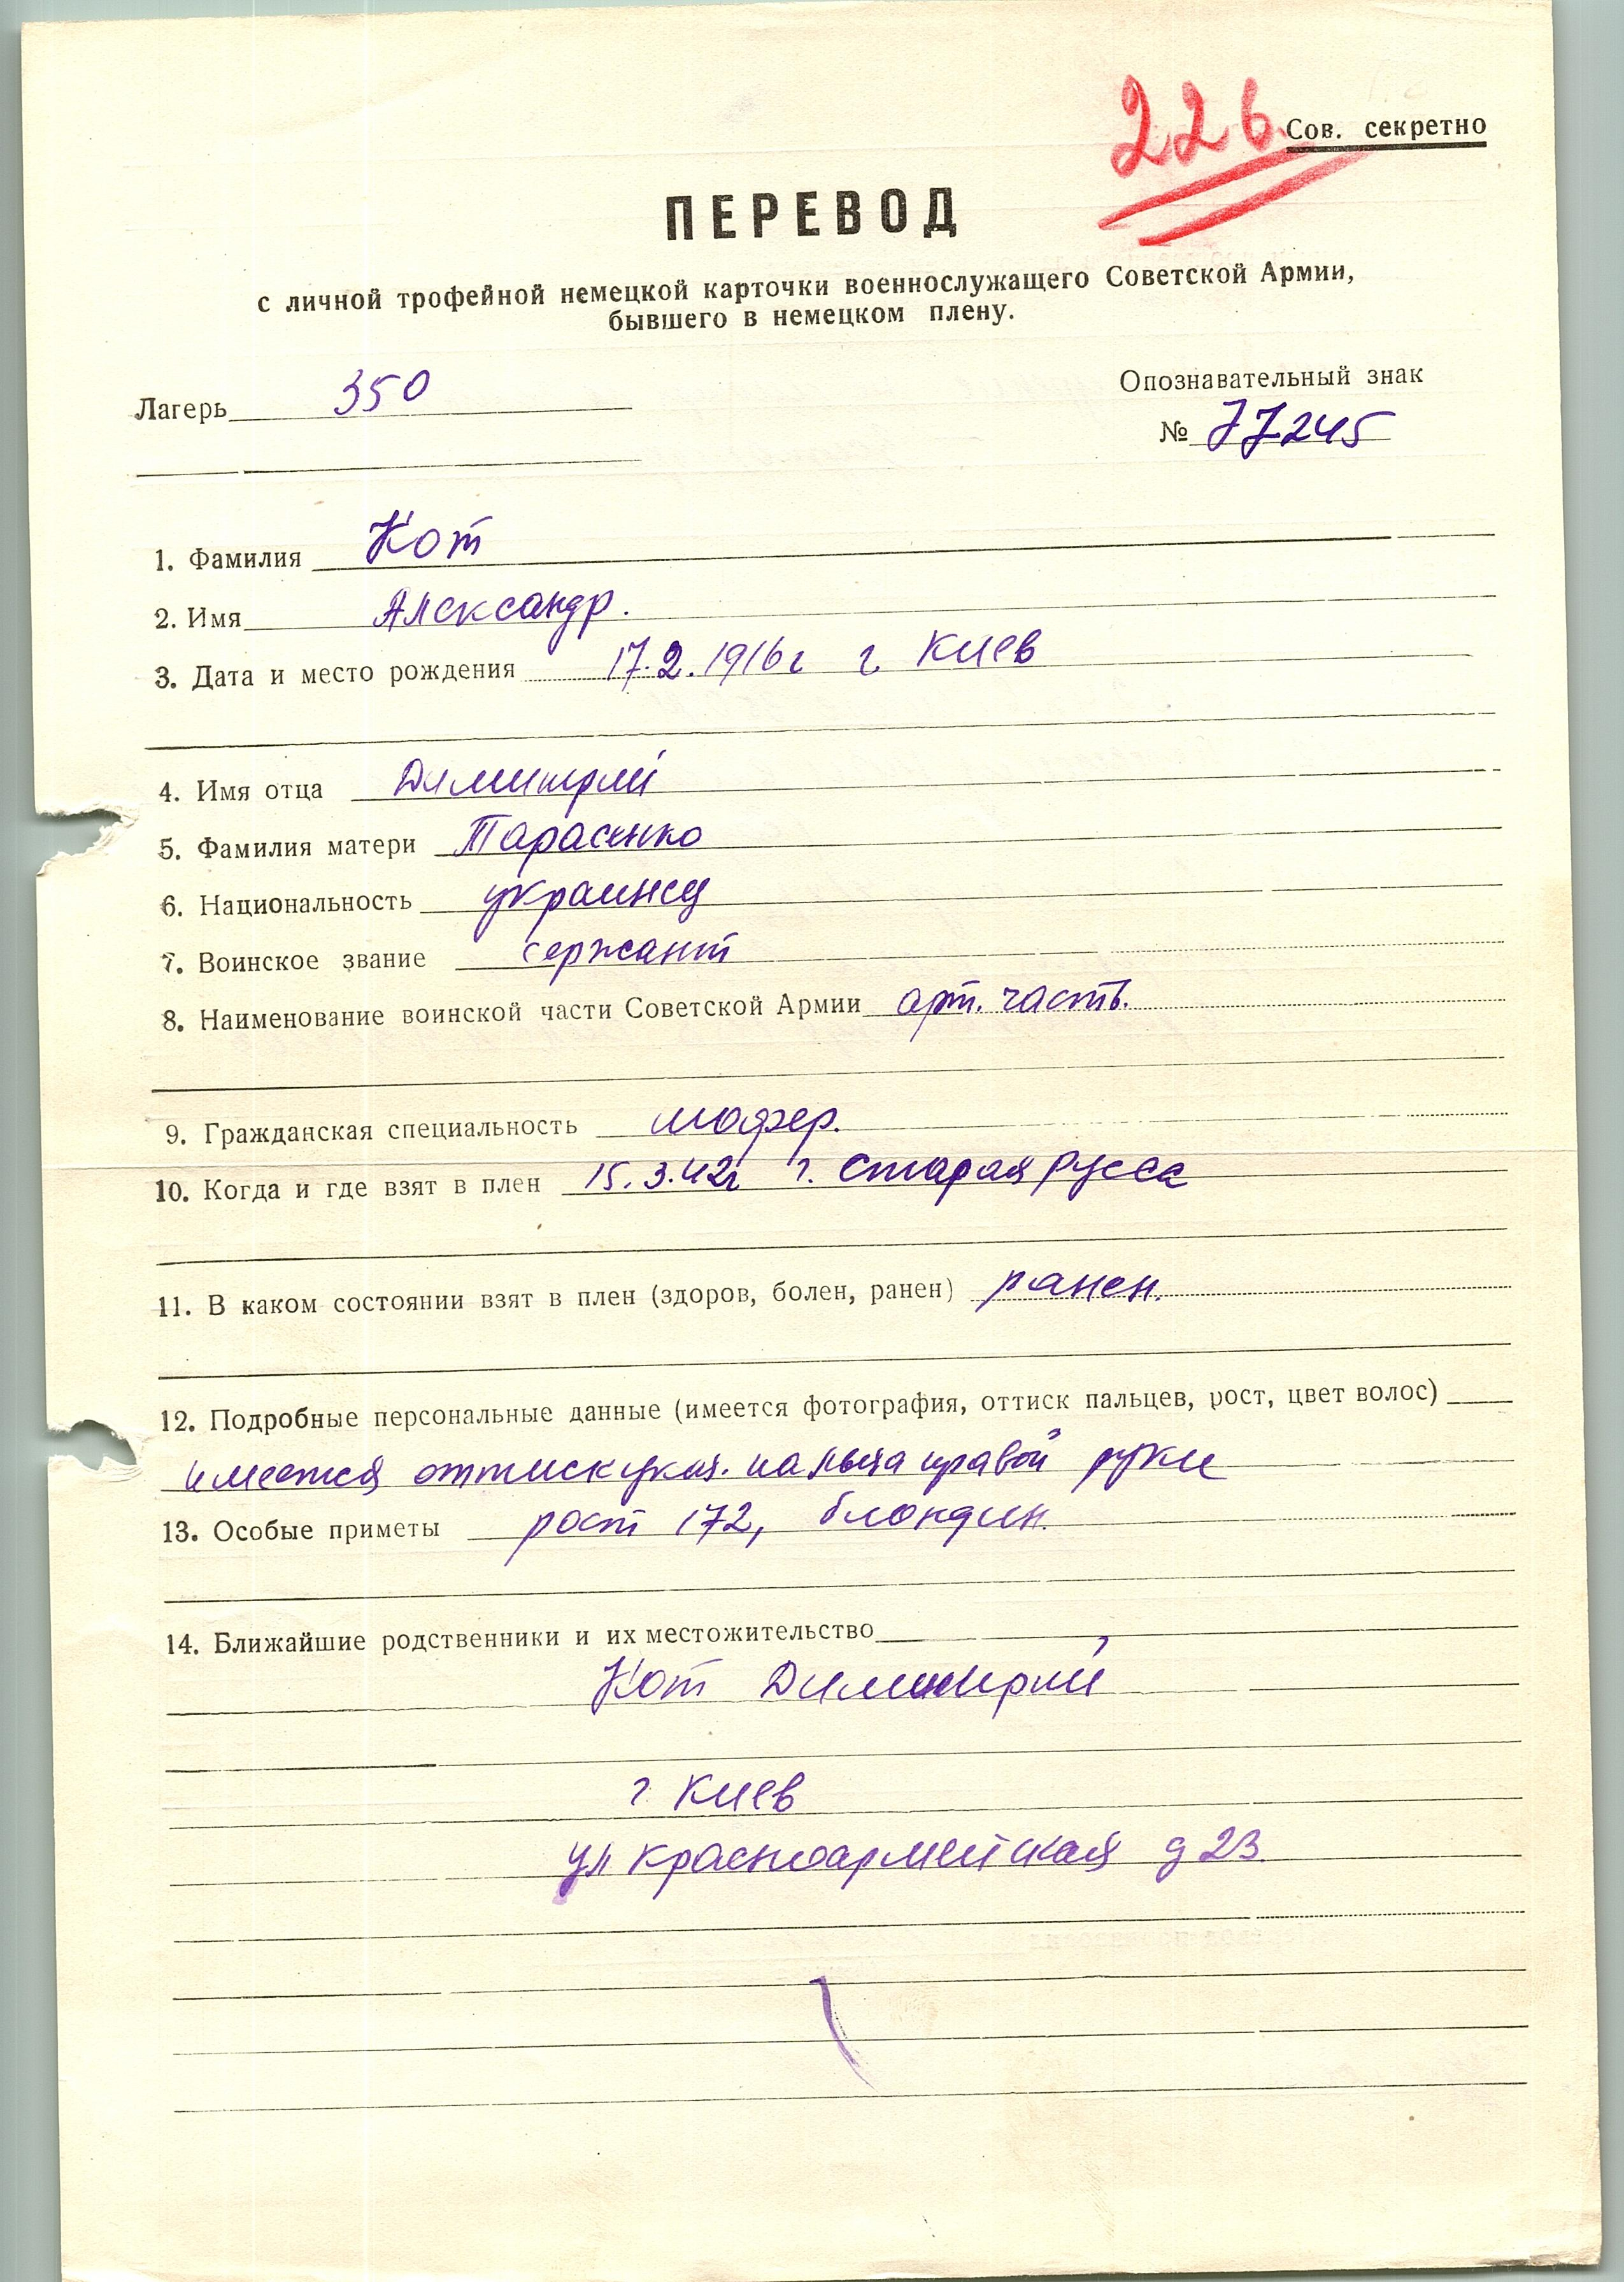 226.
Сов. секретно
ПЕРЕВОД
с личной трофейной немецкой карточки военнослужащего Советской Армии,
бывшего в немецком плену.
Лагерь 350
Опознавательный знак
№ 77245
1. Фамилия Кот
2. Имя Александр.
3. Дата и место рождения 17.2.1916г г. Киев
4. Имя отца Димитрий
5. Фамилия матери Тарасенко
6. Национальность украинец
7. Воинское звание сержант
8. Наименование воинской части Советской Армии арт. часть.
9. Гражданская специальность шофер.
10. Когда и где взят в плен 15.3.42г г. Старая Русса
11. В каком состоянии взят в плен (здоров, болен, ранен) ранен.
12. Подробные персональные данные (имеется фотография, оттиск пальцев, рост, цвет волос)
имеется оттиск указ. пальца правой руки
13. Особые приметы рост 172, блондин.
14. Ближайшие родственники и их местожительство
Кот Димитрий
г Киев
ул Красноармейская д 23